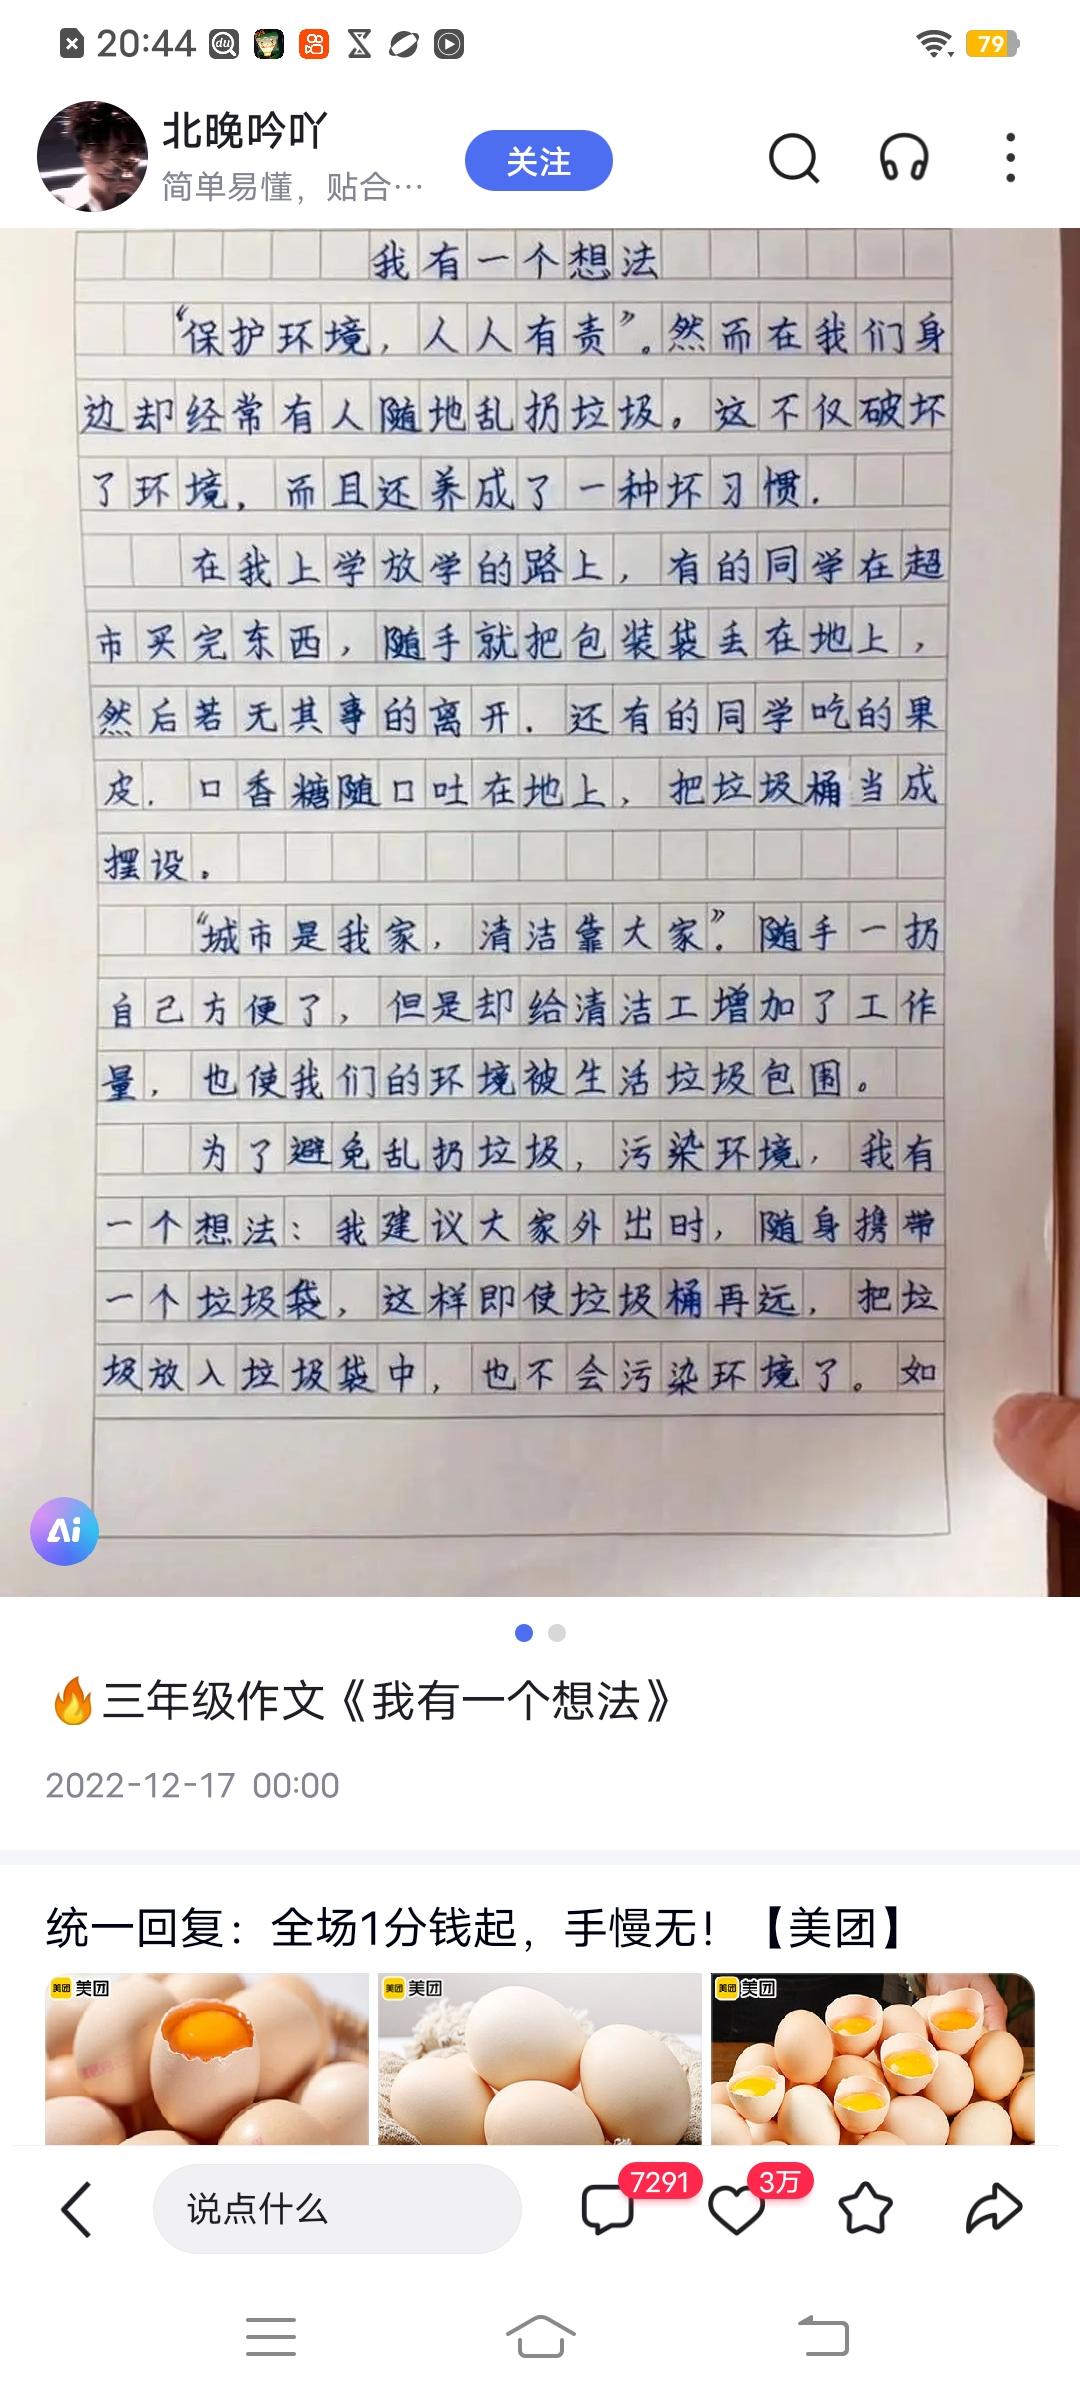 20:44
79
北晚吟吖
简单易懂，贴合…
关注
我有一个想法
“保护环境，人人有责”。然而在我们身
边却经常有人随地乱扔垃圾。这不仅破坏
了环境，而且还养成了一种坏习惯.
在我上学放学的路上，有的同学在超
市买完东西，随手就把包装袋丢在地上，
然后若无其事的离开.还有的同学吃的果
皮.口香糖随口吐在地上，把垃圾桶当成
摆设。
“城市是我家，清洁靠大家”.随手一扔
自己方便了，但是却给清洁工增加了工作
量，也使我们的环境被生活垃圾包围。
为了避免乱扔垃圾，污染环境，我有
一个想法：我建议大家外出时，随身携带
一个垃圾袋，这样即使垃圾桶再远，把垃
圾放入垃圾袋中，也不会污染环境了。如
Ai
🔥三年级作文《我有一个想法》
2022-12-17 00:00
统一回复：全场1分钱起，手慢无！【美团】
美团 美团
美团 美团
美团 美团
说点什么
7291
3万